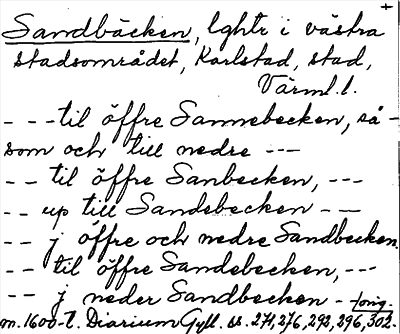 +
Sandbäcken, lghtr i västra
stadsområdet, Karlstad, stad,
Värml. l.
---til öffre Sannebecken, så-
som och till nedre ---
-- til öffre Sanbecken, ---
-- up till Sandebecken --
-- j öffre och nedre Sandbecken
-- til öffre Sandebecken, ---
-- j neder Sandbecken -- forig.
m. 1600-t. Diarium Gyll. s. 271, 276, 292, 296, 302.